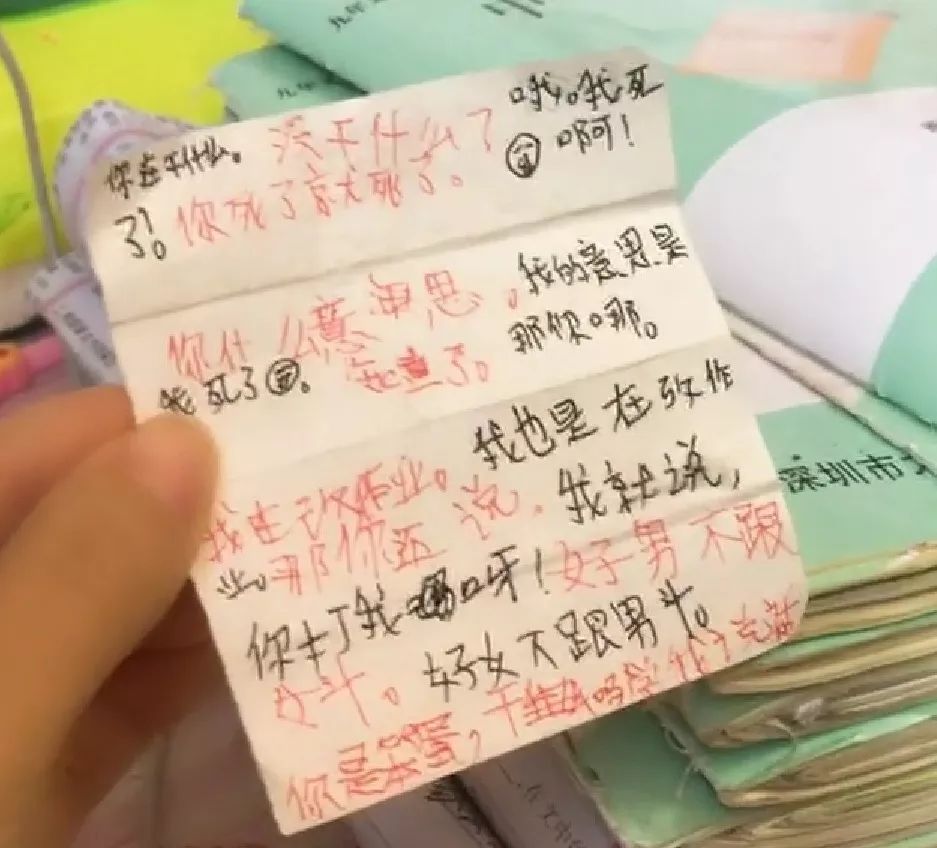 你在干什么。没干什么了
哦。我死
了!。你死了就死了。
啊!
你什么意思。我的意思是
我死了。
那你哪。
我也是在改作
我在改作业。
业。那你还说。我就说,
你打我呀!好男不跟
女斗。好女不跟男斗。
你是笨蛋,干
深圳市